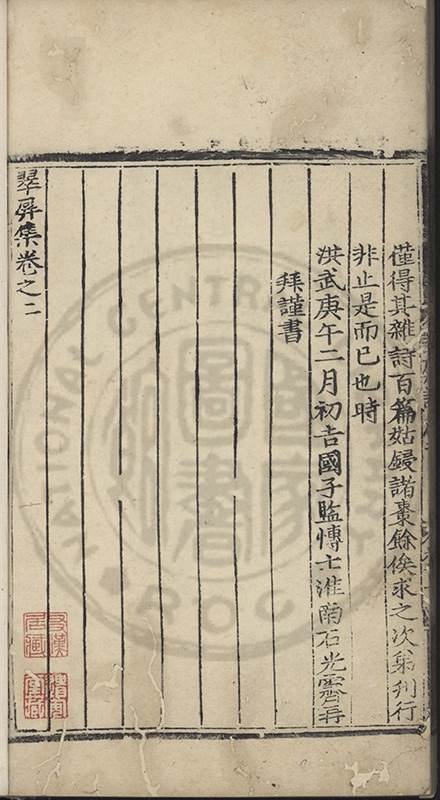 僅得其雜詩百篇姑鋟諸棗餘俟求之次第刋行
非止是而已也時
洪武庚午二月初吉國子監愽士淮南石光霽再
拜謹書
翠屏集卷之二